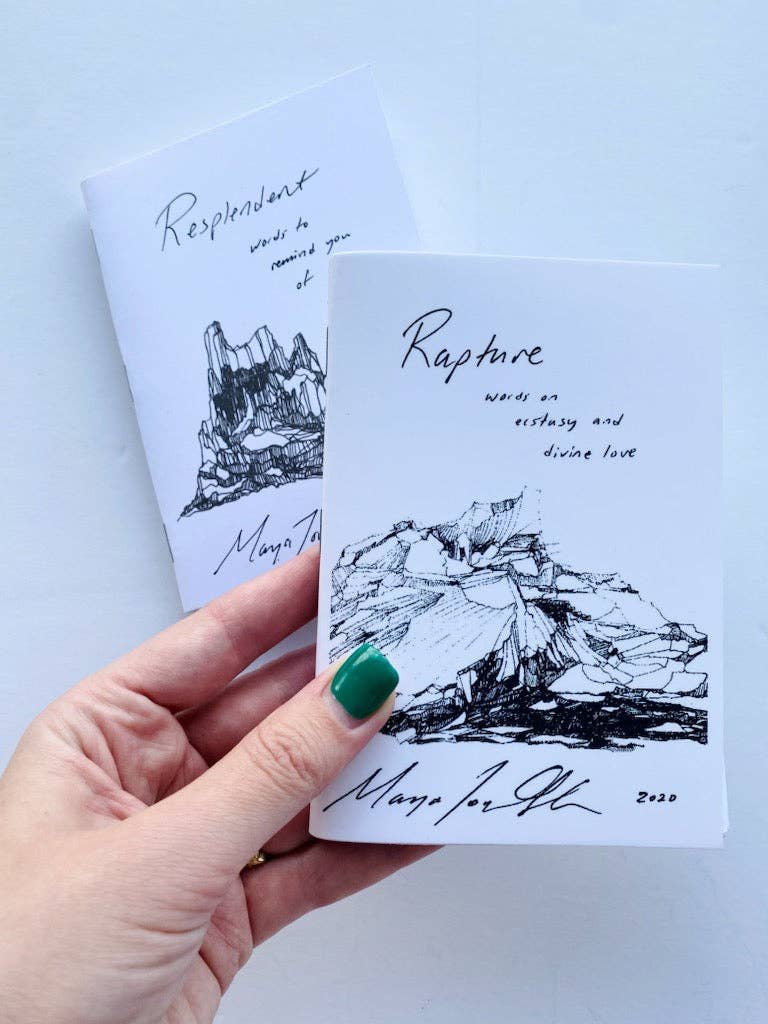 Resplendent
words to
remind you
of
Rapture
words on
ecstasy and
divine love
Maya
Maya
2020